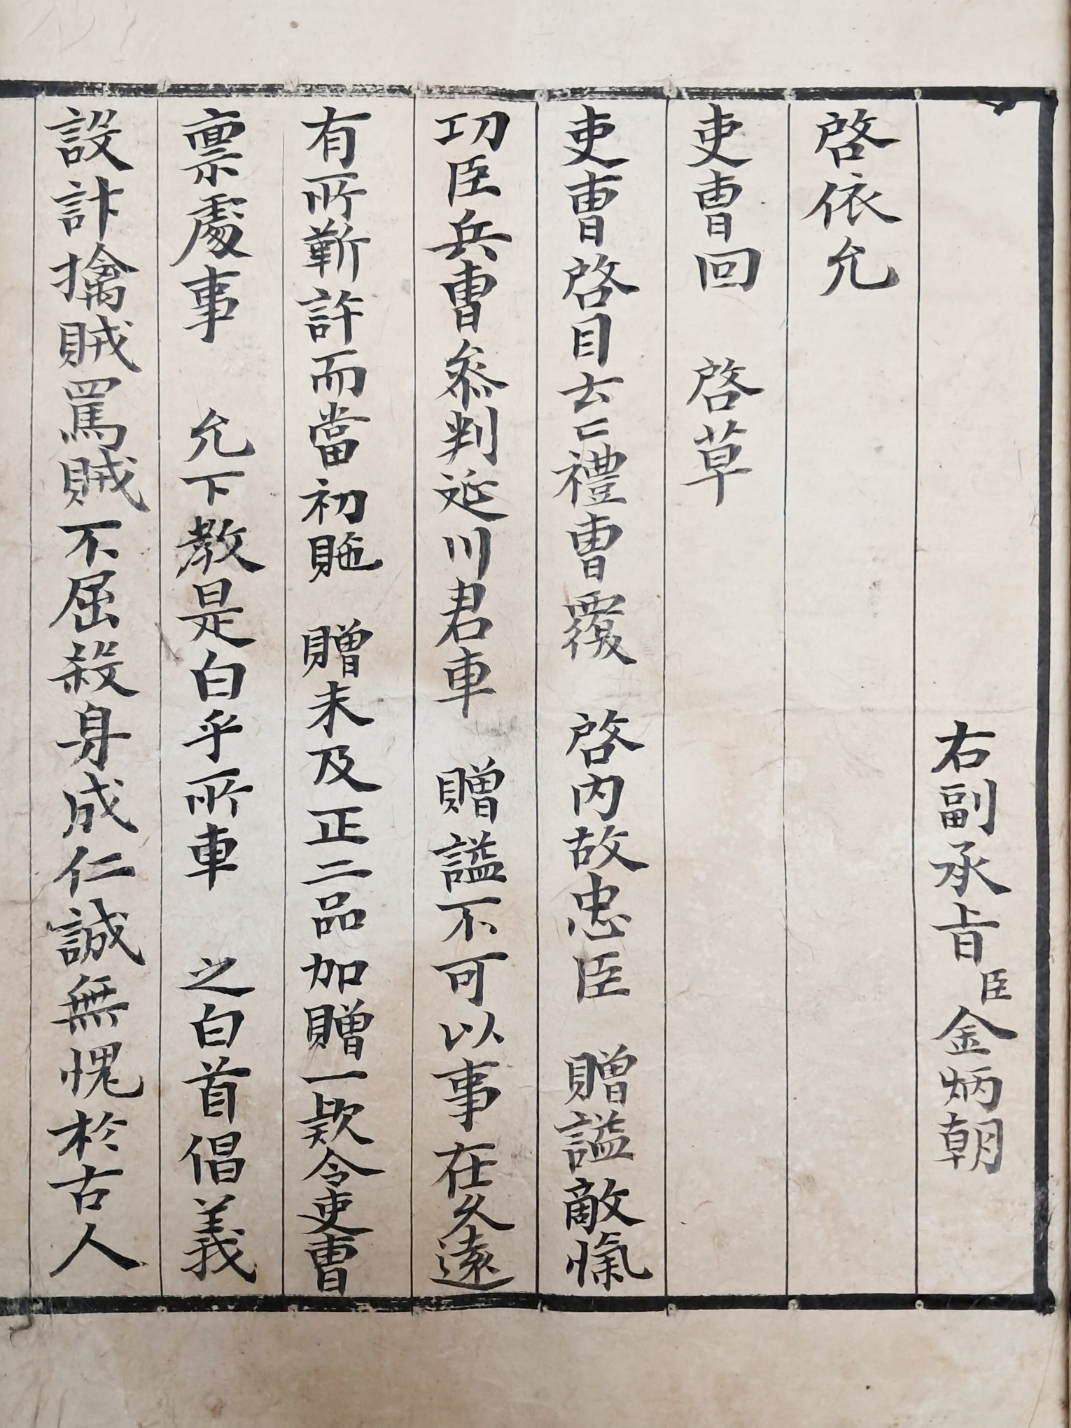 右副承旨臣金炳朝
啓依允
吏曹回 啓草
吏曹啓目云云禮曹覆 啓內故忠臣 贈謚敵愾
功臣兵曹參判延川君車 贈謚不可以事在久遠
有所靳許而當初貤 贈未及正二品加贈一款令吏曹
稟處事 允下敎是白乎所車 之白首倡義
設計擒賊罵賊不屈殺身成仁誠無愧於古人